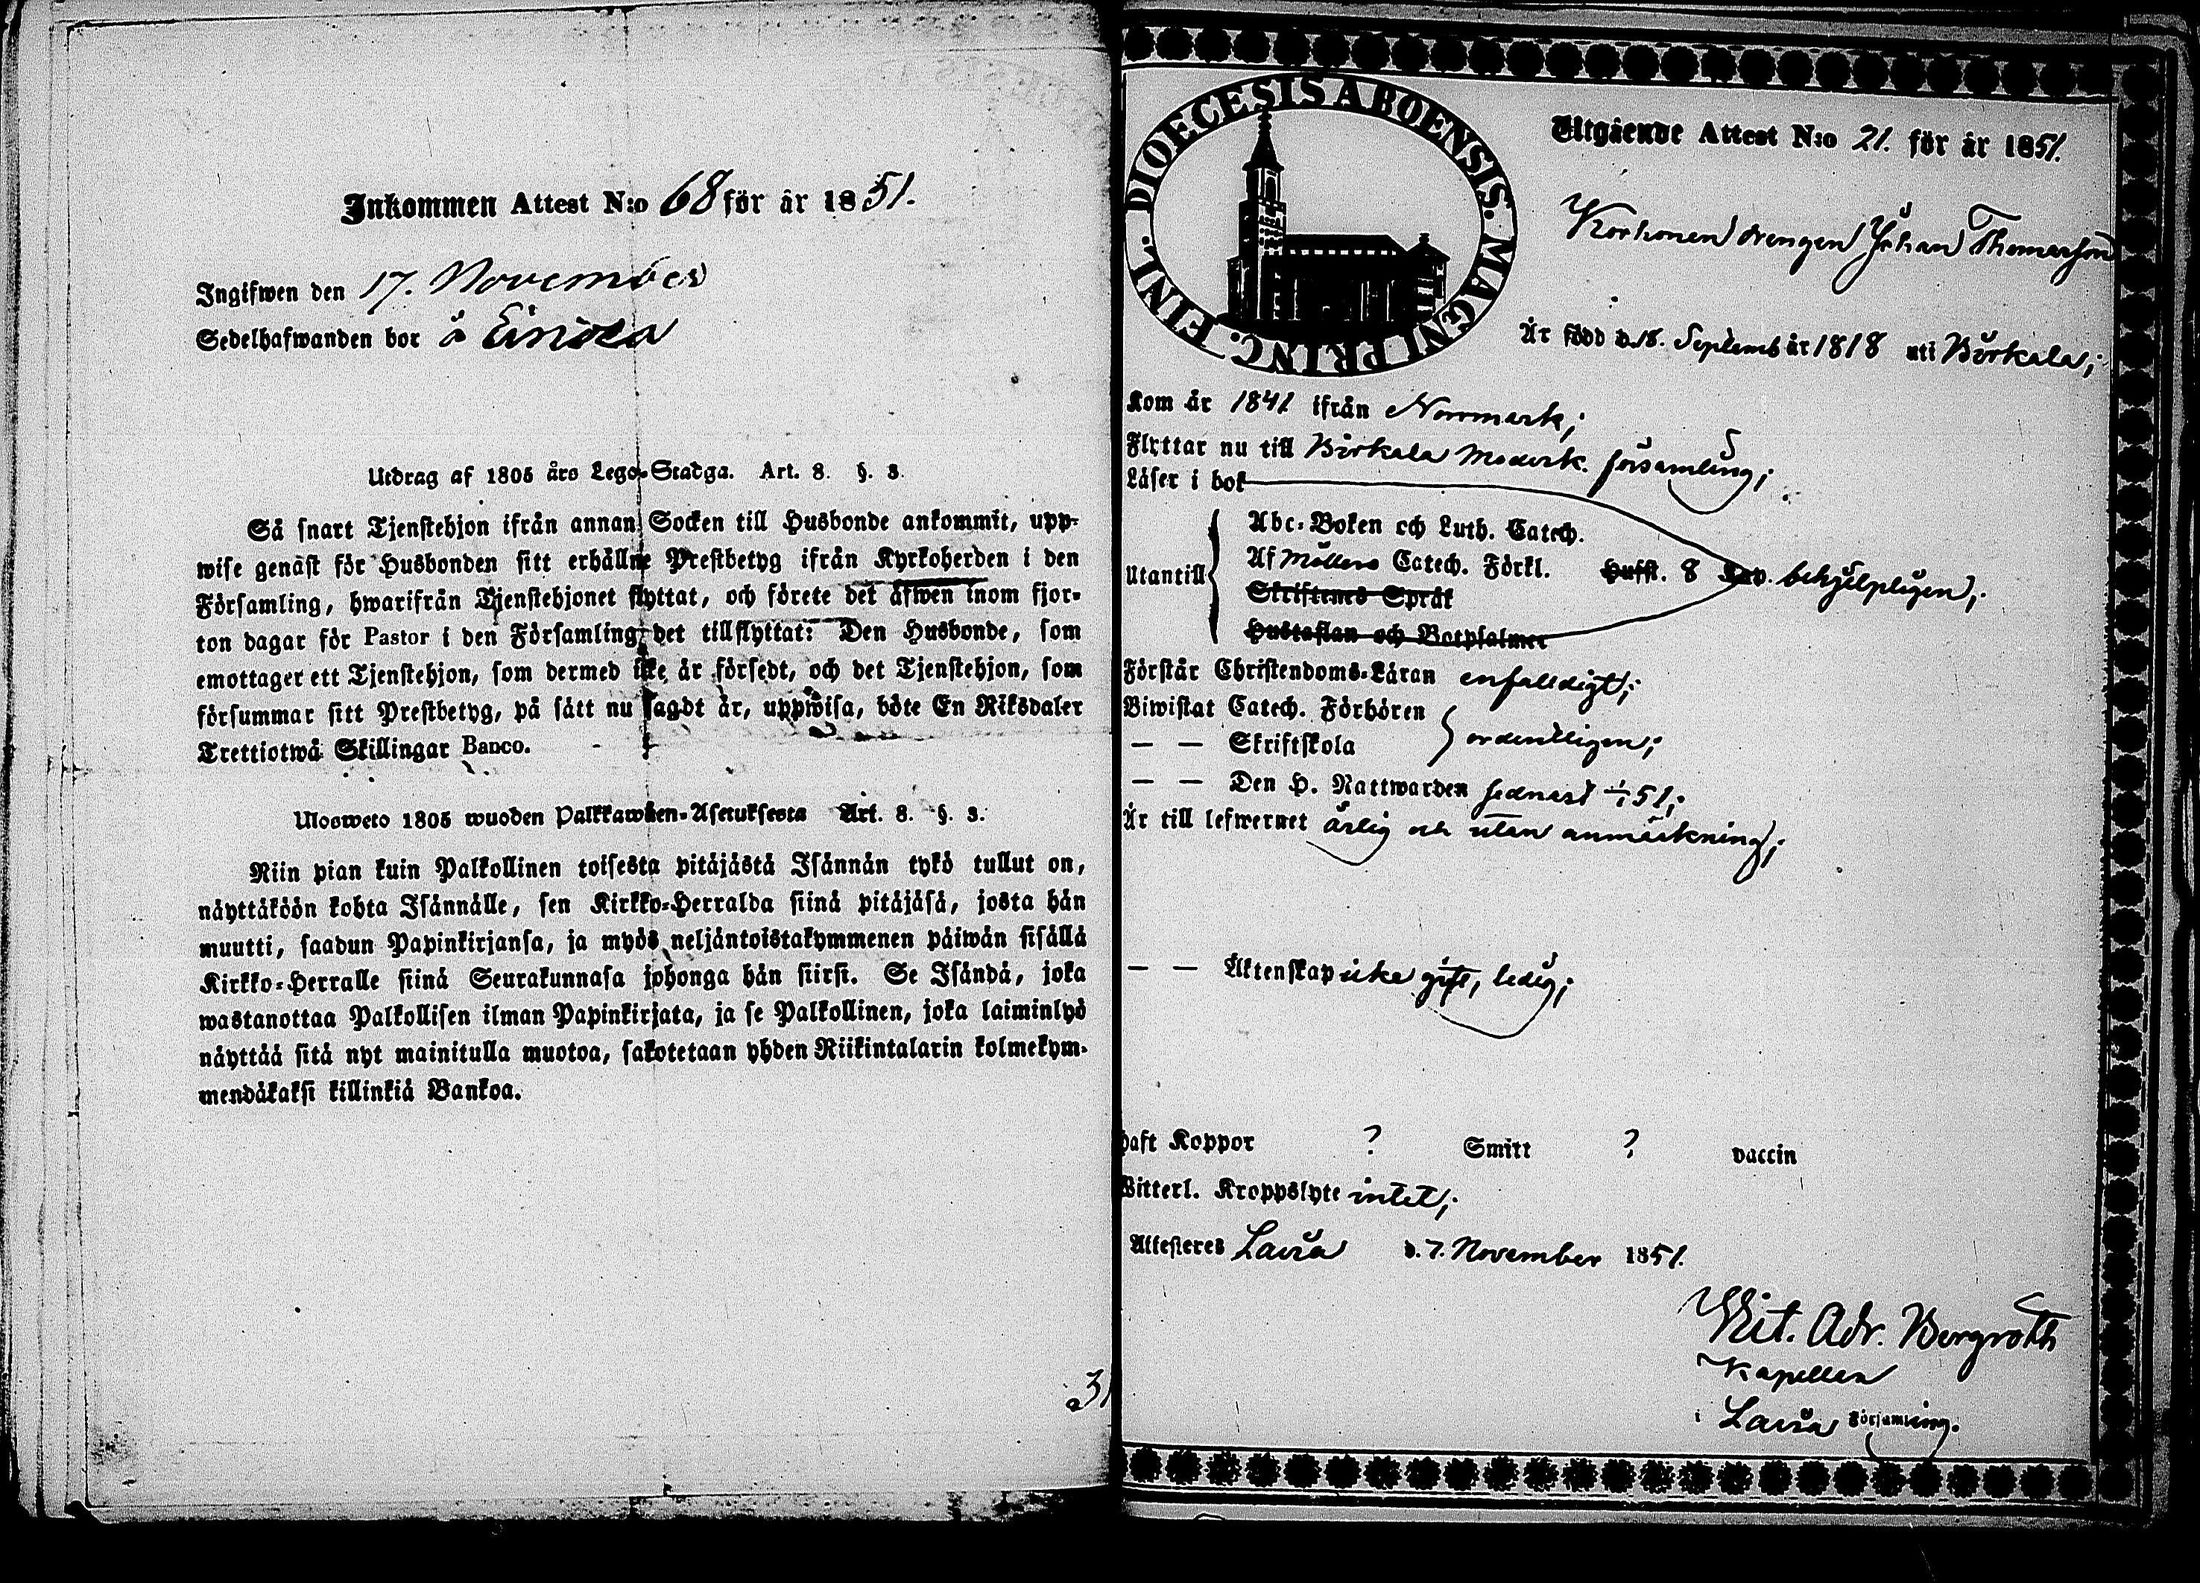 Inkommen Attest N:o 68 för år 1851.
Ingifwen den 17. November
Sedelhafwanden bor å Einola
Utdrag af 1805 års Lego-Stadga. Art. 8. §. 3.
Så snart Tjenstehjon ifrån annan Socken till Husbonde ankommit, upp-
wise genast för Husbonden sitt erhållne Prestbetyg ifrån Kyrkoherden i den
Församling, hwarifrån Tjenstehjonet flyttat, och förete det äfwen inom fjor-
ton dagar för Pastor i den Församling det tillflyttat: Den Husbonde, som
emottager ett Tjenstehjon, som dermed icke är försedt, och det Tjenstehjon, som
försummar sitt Prestbetyg, på sätt nu sagdt är, uppwisa, böte En Riksdaler
Trettiotwå Skillingar Banco.
Ulosweto 1805 wuoden Palkkawäen-Asetuksesta Art. 8. §. 3.
Niin pian kuin Palkollinen toisesta pitäjästä Isännän tykö tullut on,
näyttäköön kohta Isännälle, sen Kirkko-Herralda siinä pitäjäsä, josta hän
muutti, saadun Papinkirjansa, ja myös neljäntoistakymmenen päiwän sisällä
Kirkko-Herralle siinä Seurakunnasa johonga hän siirsi. Se Isändä, joka
wastanottaa Palkollisen ilman Papinkirjata, ja se Palkollinen, joka laiminlyö
näyttää sitä nyt mainitulla muotoa, sakotetaan yhden Riikintalarin kolmekym-
mendäkaksi killinkiä Bankoa.
31
DIOECESIS ABOENSIS. MAGNI PRINC. FINL.
Utgående Attest N:o 21. för år 1851.
Korhonen drengen Johan Thomasson
Är född d. 18. Septemb år 1818 uti Birkala;
Kom år 1841 ifrån Norrmark;
Flyttar nu till Birkala Moderk. församling;
Läser i bok
Utantill
Abc-Boken och Luth. Catech.
Af Möllers Catech. Förkl. Hufst. 8 behjelpligen;
Skriftenes Språk
Hustaflan och Botpsalmer
Förstår Christendoms-Läran enfaldigt;
Biwistat Catech. Förhören
— — Skriftskola ordentligen;
— — Den H. Nattwarden sednast 51;
Är till lefwernet ärlig och utan anmärkning;
— — Äktenskap icke gift, ledig;
haft Koppor ? Smitt ? vaccin
Witterl. Kroppslyte intet;
Attesteres Lavia d. 7. November 1851.
Vit. Adr. Bergroth
Kapellan
i Lavia Församling.